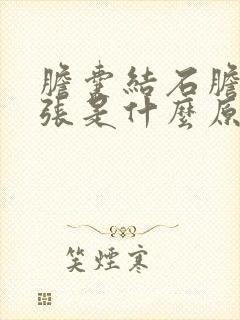 膽囊結石膽
張是什麼原
笑煙寒